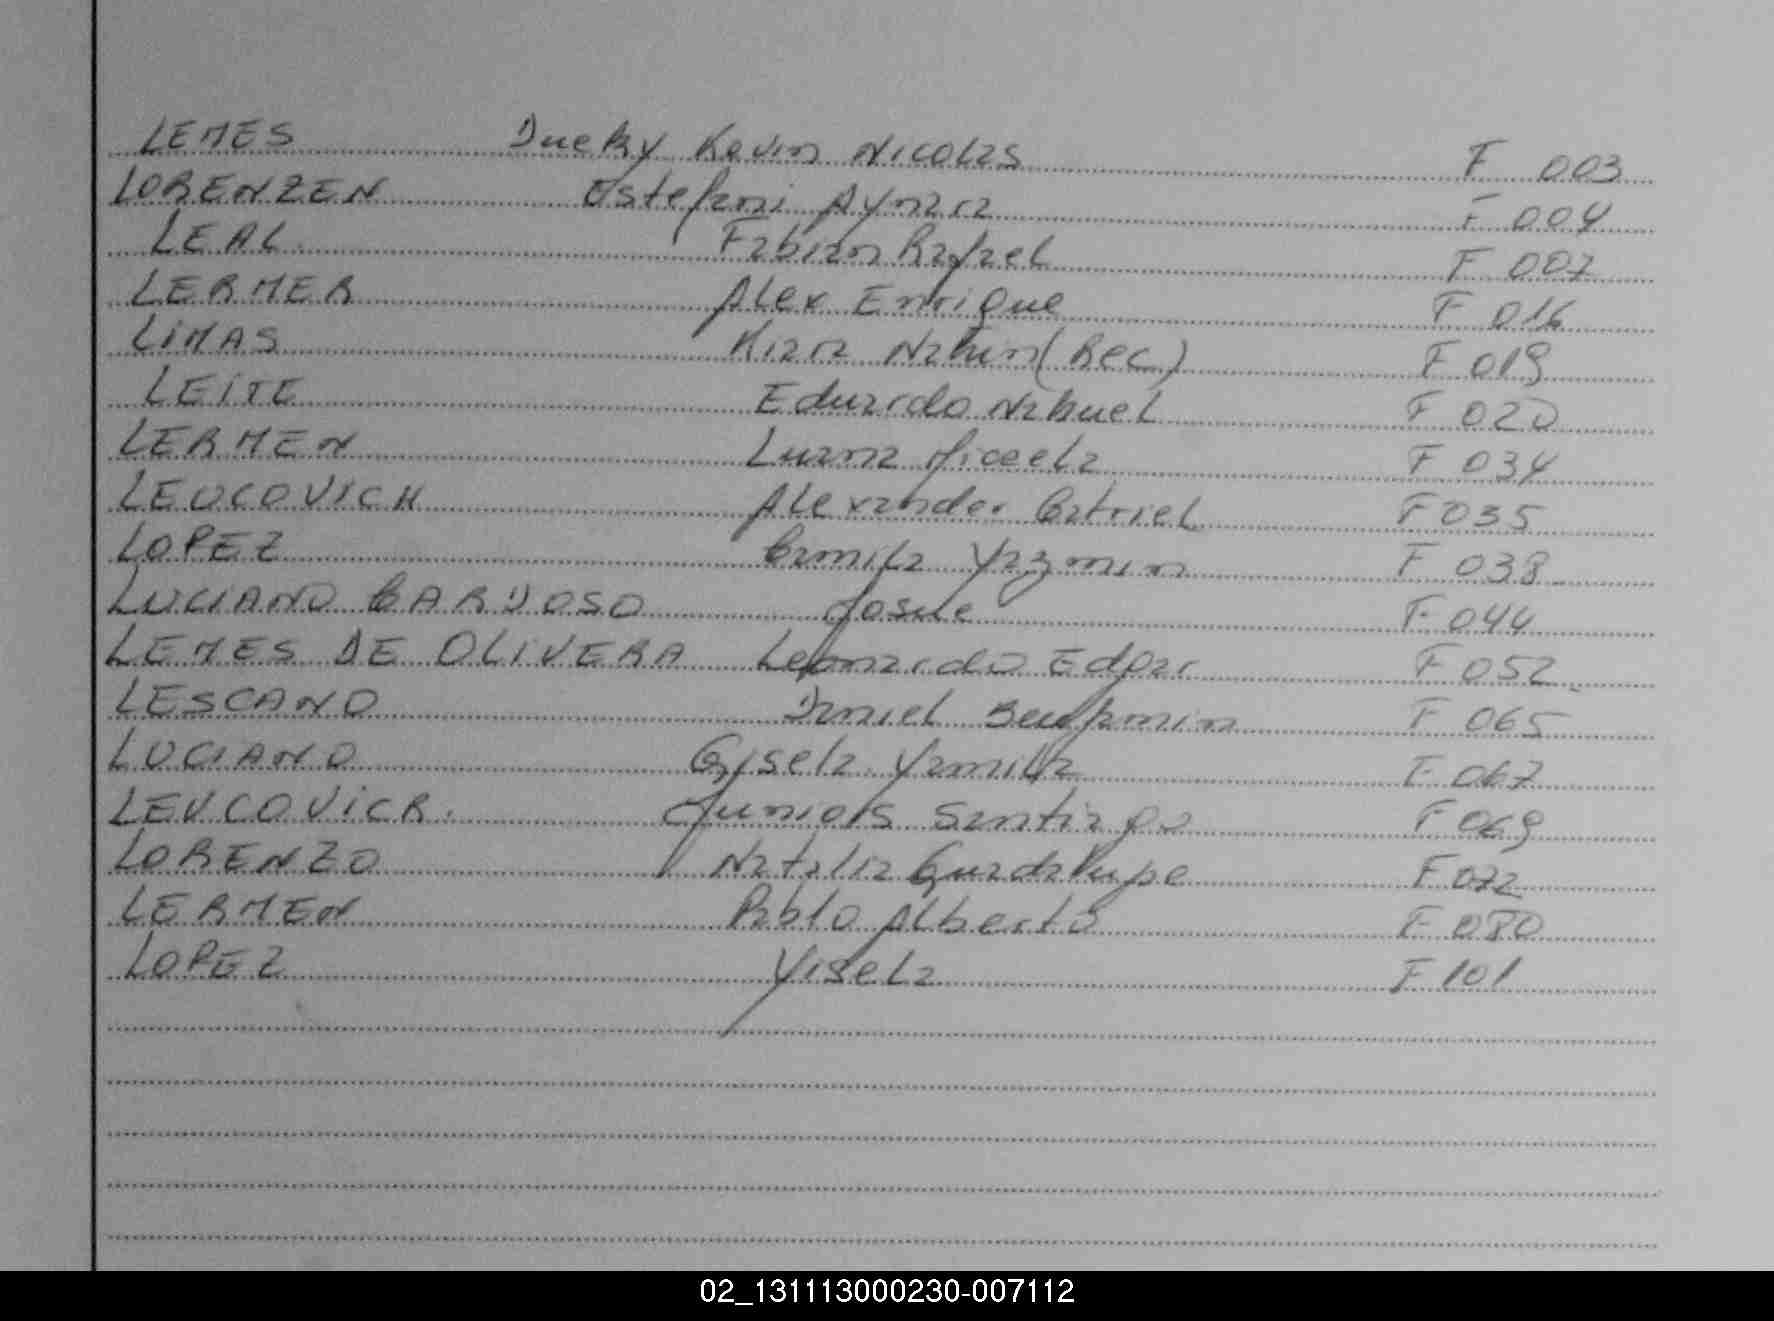 LEMES Dueky Kevin Nicolas F 003
LORENZEN Estefani Aynara F 004
LEAL Fabian Rafael F 007
LERMER Alex Enrique F 016
LIMAS Kiara (Rec.) F 019
LEITE Eduardo Nahuel F 020
LERMEN Luana Micaela F 034
LEOCOVICH Alexander Catriel F 035
LOPEZ Camila Yazmin F 038
LUCIANO CARDOSO Josue F 044
LEMES DE OLIVERA Leonardo Edgar F 052
LESCANO Daniel Benjamin F 065
LUCIANO Gisela Yamila F 067
LEVCOVICR. Juniors Santiago F 069
LORENZO Natalia Guadalupe F 072
LERMEN Pablo Alberto F 080
LOPEZ Yisela F 101
02_131113000230-007112